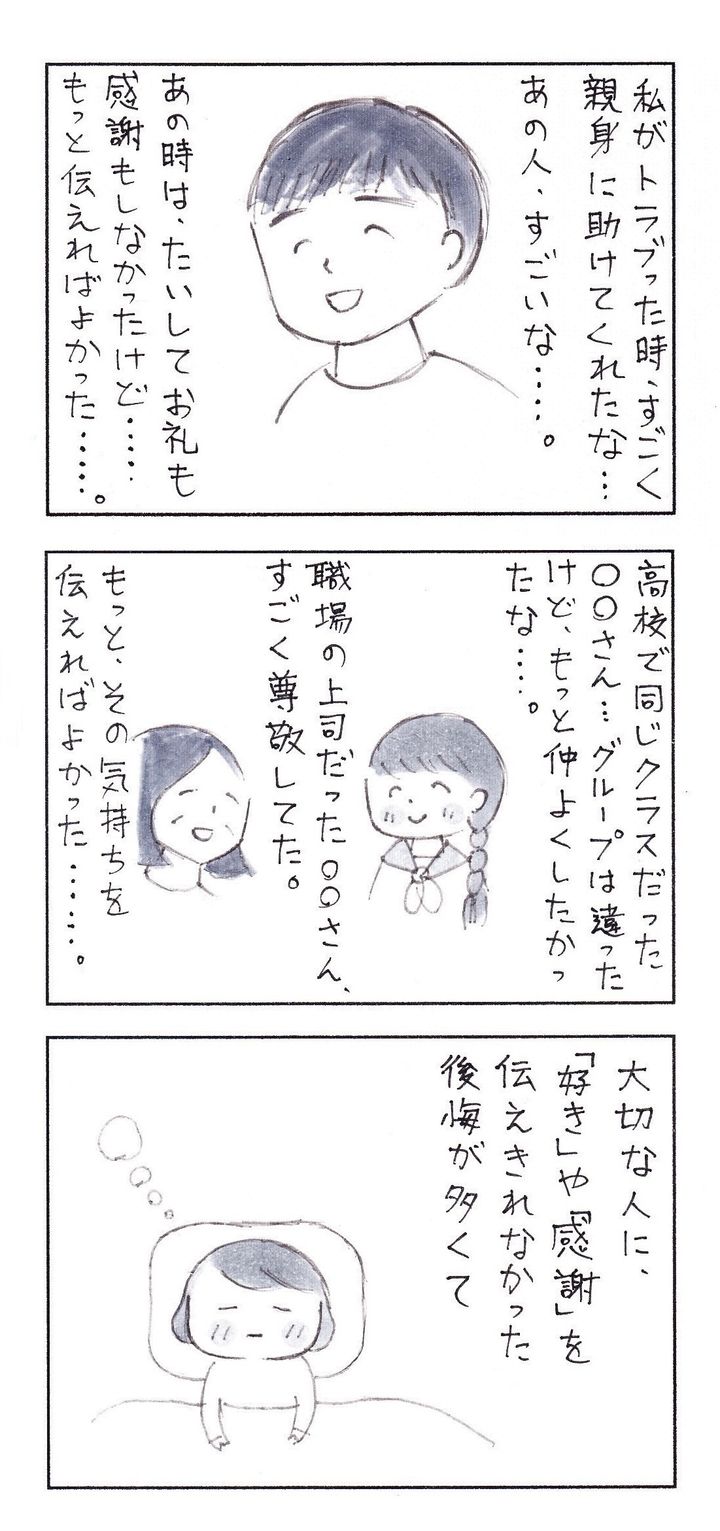 私がトラブった時、すごく
親身に助けてくれたな…
あの人、すごいな……。
あの時は、たいしてお礼も
感謝もしなかったけど……
もっと伝えればよかった……。
高校で同じクラスだった
〇〇さん…グループは違った
けど、もっと仲よくしたかっ
たな……。
職場の上司だった〇〇さん、
すごく尊敬してた。
もっと、その気持ちを
伝えればよかった………。
大切な人に、
「好き」や「感謝」を
伝えきれなかった
後悔が多くて